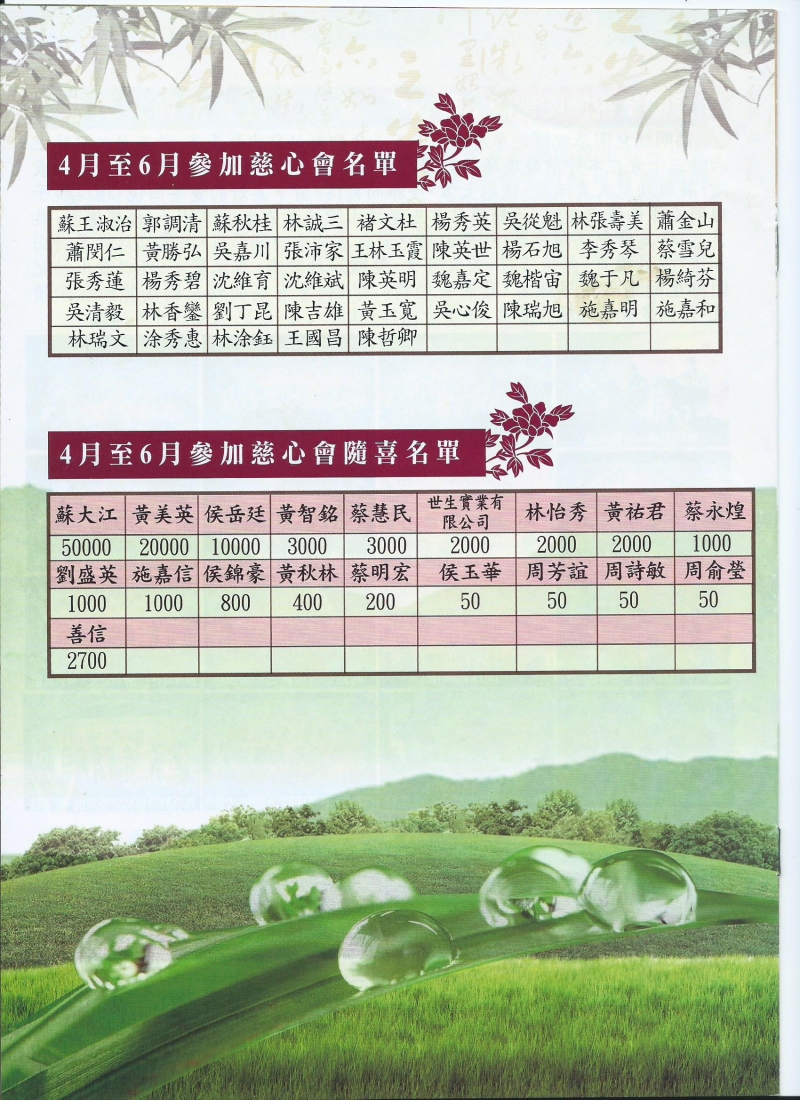 4月至6月參加慈心會名單
蘇王淑治 郭調清 蘇秋桂 林誠三 褚文杜 楊秀英 吳從魁 林張壽美 蕭金山
蕭閔仁 黃勝弘 吳嘉川 張沛家 王林玉霞 陳英世 楊石旭 李秀琴 蔡雪兒
張秀蓮 楊秀碧 沈維育 沈維斌 陳英明 魏嘉定 魏楷宙 魏于凡 楊綺芬
吳清毅 林香鑾 劉丁昆 陳吉雄 黃玉寬 吳心俊 陳瑞旭 施嘉明 施嘉和
林瑞文 涂秀惠 林涂鈺 王國昌 陳哲卿
4月至6月參加慈心會隨喜名單
蘇大江 黃美英 侯岳廷 黃智銘 蔡慧民 世生實業有限公司 林怡秀 黃祐君 蔡永煌
50000 20000 10000 3000 3000 2000 2000 2000 1000
劉盛英 施嘉信 侯錦豪 黃秋林 蔡明宏 侯玉華 周芳誼 周詩敏 周俞瑩
1000 1000 800 400 200 50 50 50 50
善信
2700